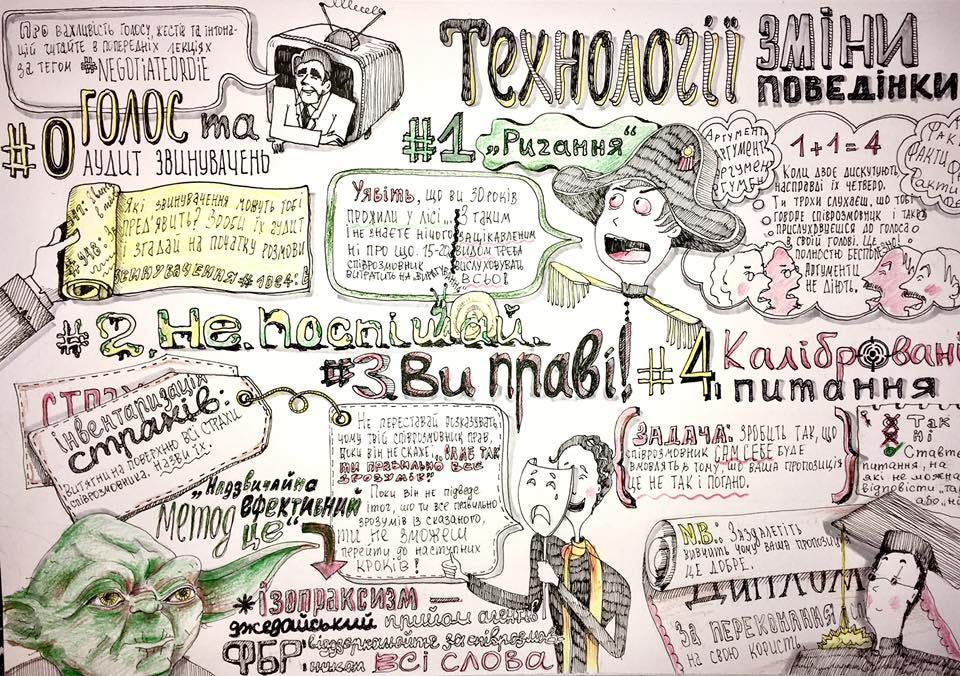 Про важливість голосу, жестів та інтона-
цій читайте в попередніх лекціях
за тегом #NEGOTIATEORDIE
Технології
зміни
поведінки
#0
Голос та
аудит звинувачень
Які звинувачення можуть тобі
пред'явить? Зроби їх аудит
і згадай на початку розмови
звинувачення #1024:
#948:
#1 „Ригання“
Уявіть, що ви 30 років
прожили у лісі...
і не знаєте нічого
ні про що. 15-20
співрозмовник
З таким
зацікавленим
видом треба
вислуховувать
всьо!
Аргументи
аргументи
1+1=4
Факти
Факти
Коли двоє дискутують,
насправді їх четверо.
Ти трохи слухаєш, що тобі
говоре співрозмовник і також
прислухвуєшся до голоса
в своїй голові. Це
полностью беспо
Аргументи
не діють,
#2. Не поспішай.
#3 Ви праві!
#4 Калібровані
питання
страх
інвентаризація
страхів:
витягни на поверхню всі страхи
співрозмовника.
Назви їх.
Не переставай розказувать,
чому твій співрозмовник прав,
поки він не скаже, „саме так
ти правильно все
зрозумів“
Поки він не підведе
ітог, шо ти все правильно
зрозумів із сказаного,
ти не зможеш
перейти до наступних
кроків!
Задача: зробить так, що
співрозмовник сам себе буде
вмовлять в тому, шо ваша пропозиція
це не так і погано.
Так
Ні
Ставте
питання, на
які не можна
відповісти „так“
або „ні“
„Надзвичайно
ефективний
метод це“
*ізопраксизм —
джедайський прийом агентів
ФБР: віддзеркалюйте за співрозмов-
ником всі слова
N.B.: Заздалегіть
вивчить чому ваша пропозиція
це добре.
Диплом
За переконання
на свою користь.